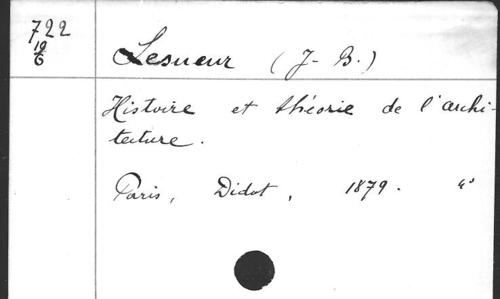 722
19
6
Lesueur (J-B.)
Histoire et théorie de l'archi-
tecture.
Paris, Didot, 1879. 4°